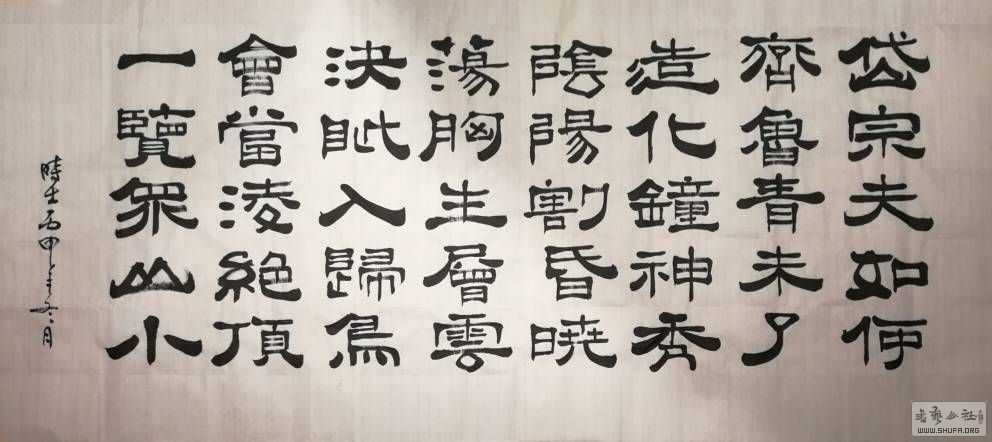 岱宗夫如何
齊魯青未了
造化鐘神秀
陰陽割昏曉
蕩胸生層雲
決眦入歸鳥
會當淩絕頂
一覽眾山小
時在丙申年冬月
書藝公社
WWW.SHUFA.ORG